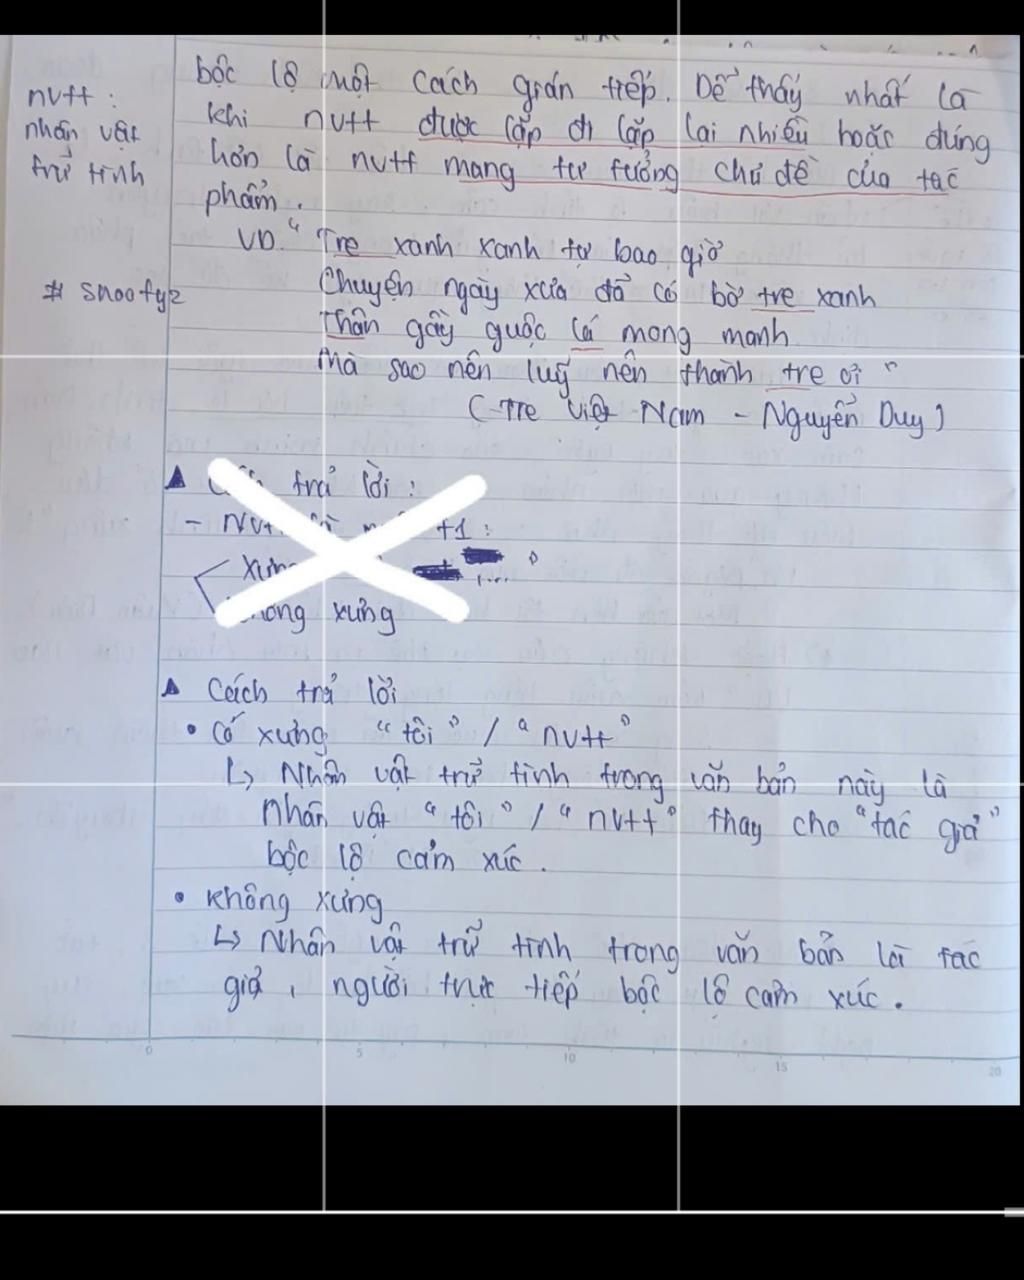 nvtt :
nhân vật
trữ tình
# snoofyz
bộc lộ một cách gián tiếp. Dễ thấy nhất là
khi nvtt được lặp đi lặp lại nhiều hoặc đúng
hơn là nvtt mang tư tưởng chủ đề của tác
phẩm.
VD. " Tre xanh xanh tự bao giờ
Chuyện ngày xưa đã có bờ tre xanh
Thân gầy guộc lá mong manh
Mà sao nên luỹ nên thành tre ơi "
(-Tre Việt Nam - Nguyễn Duy)
trả lời :
xưng
▲ Cách trả lời
• Có xưng "tôi" / "nvtt"
↳ Nhân vật trữ tình trong văn bản này là
nhân vật "tôi" / "nvtt" thay cho "tác giả"
bộc lộ cảm xúc.
• Không xưng
↳ Nhân vật trữ tình trong văn bản là tác
giả, người trực tiếp bộc lộ cảm xúc.
0 5 10 15 20